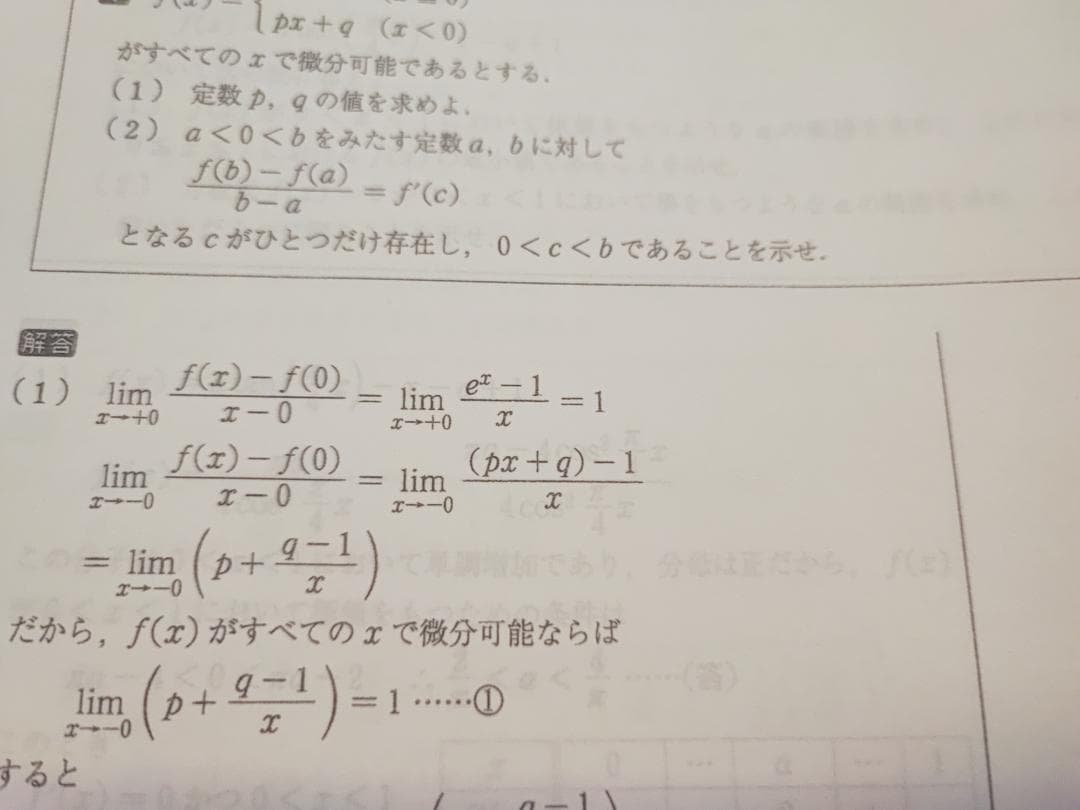 px + q (x < 0)
がすべての x で微分可能であるとする.
(1) 定数 p, q の値を求めよ.
(2) a < 0 < b をみたす定数 a, b に対して
\frac{f(b) - f(a)}{b - a} = f'(c)
となる c がひとつだけ存在し, 0 < c < b であることを示せ.
解答
(1) \lim_{x→+0} \frac{f(x) - f(0)}{x - 0} = \lim_{x→+0} \frac{e^x - 1}{x} = 1
\lim_{x→-0} \frac{f(x) - f(0)}{x - 0} = \lim_{x→-0} \frac{(px + q) - 1}{x}
= \lim_{x→-0} ( p + \frac{q - 1}{x} )
だから, f(x) がすべての x で微分可能ならば
\lim_{x→-0} ( p + \frac{q - 1}{x} ) = 1 ……①
すると
q - 1